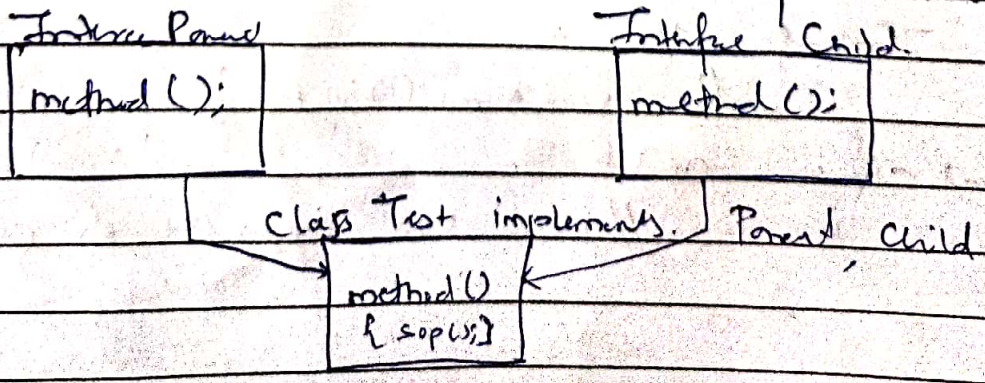 Interface Parent
Interface Child.
method ();
method ();
Class Test implements. Parent, Child
method ()
{ sop();}